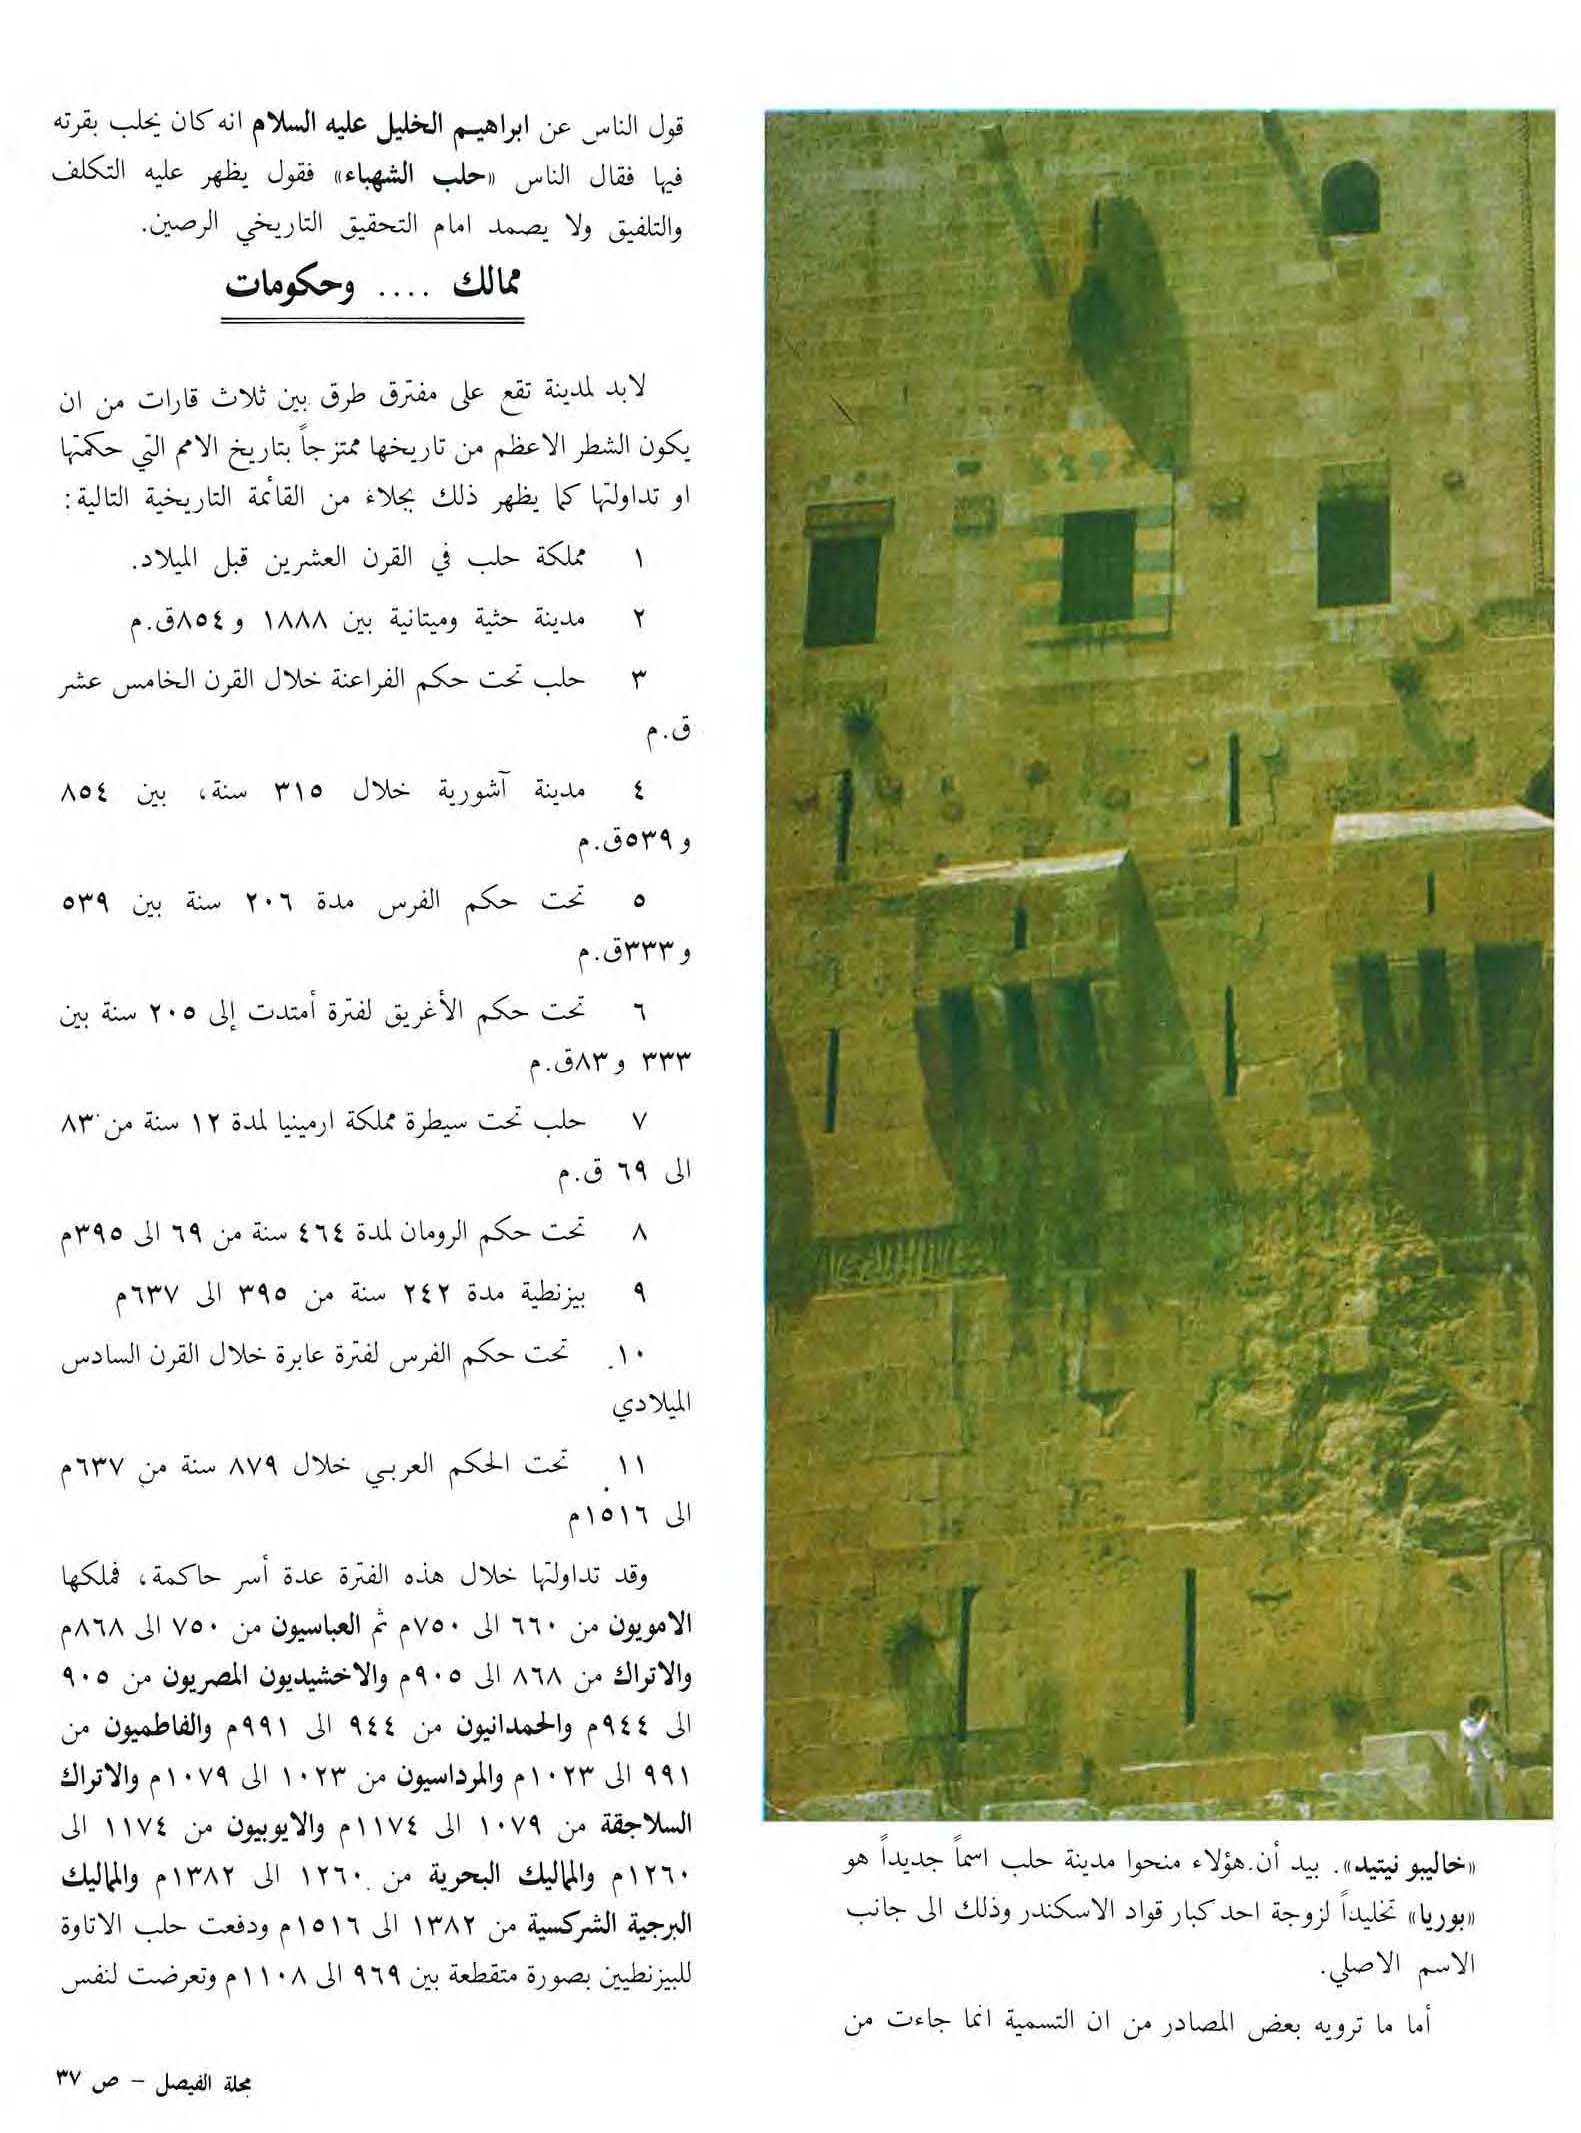 «خاليبو نيتيد». بيد أن هؤلاء منحوا مدينة حلب اسماً جديداً هو
«بوريا» تخليداً لزوجة احد كبار قواد الاسكندر وذلك الى جانب
الاسم الاصلي.
أما ما ترويه بعض المصادر من ان التسمية انما جاءت من
قول الناس عن ابراهيم الخليل عليه السلام انه كان يحلب بقرته
فيها فقال الناس «حلب الشهباء» فقول يظهر عليه التكلف
والتلفيق ولا يصمد امام التحقيق التاريخي الرصين.
ممالك .... وحكومات
لابد لمدينة تقع على مفترق طرق بين ثلاث قارات من ان
يكون الشطر الاعظم من تاريخها ممتزجاً بتاريخ الامم التي حكمتها
او تداولتها كما يظهر ذلك بجلاء من القائمة التاريخية التالية:
١ مملكة حلب في القرن العشرين قبل الميلاد.
٢ مدينة حثية وميتانية بين ١٨٨٨ و٨٥٤ق.م
٣ حلب تحت حكم الفراعنة خلال القرن الخامس عشر
ق.م
٤ مدينة آشورية خلال ٣١٥ سنة، بين ٨٥٤
و٥٣٩ق.م
٥ تحت حكم الفرس مدة ٢٠٦ سنة بين ٥٣٩
و٣٣٣ق.م
٦ تحت حكم الأغريق لفترة أمتدت إلى ٢٠٥ سنة بين
٣٣٣ و٨٣ق.م
٧ حلب تحت سيطرة مملكة ارمينيا لمدة ١٢ سنة من ٨٣
الى ٦٩ ق.م
٨ تحت حكم الرومان لمدة ٤٦٤ سنة من ٦٩ الى ٣٩٥م
٩ بيزنطية مدة ٢٤٢ سنة من ٣٩٥ الى ٦٣٧م
١٠ تحت حكم الفرس لفترة عابرة خلال القرن السادس
الميلادي
١١ تحت الحكم العربي خلال ٨٧٩ سنة من ٦٣٧م
الى ١٥١٦م
وقد تداولتها خلال هذه الفترة عدة أسر حاكمة، فملكها
الامويون من ٦٦٠ الى ٧٥٠م ثم العباسيون من ٧٥٠ الى ٨٦٨م
والاتراك من ٨٦٨ الى ٩٠٥م والاخشيديون المصريون من ٩٠٥
الى ٩٤٤م والحمدانيون من ٩٤٤ الى ٩٩١م والفاطميون من
٩٩١ الى ١٠٢٣م والمرداسيون من ١٠٢٣ الى ١٠٧٩م والاتراك
السلاجقة من ١٠٧٩ الى ١١٧٤م والايوبيون من ١١٧٤ الى
١٢٦٠م والمماليك البحرية من ١٢٦٠ الى ١٣٨٢م والمماليك
البرجية الشركسية من ١٣٨٢ الى ١٥١٦م ودفعت حلب الاتاوة
للبيزنطيين بصورة متقطعة بين ٩٦٩ الى ١١٠٨م وتعرضت لنفس
مجلة الفيصل – ص ٣٧